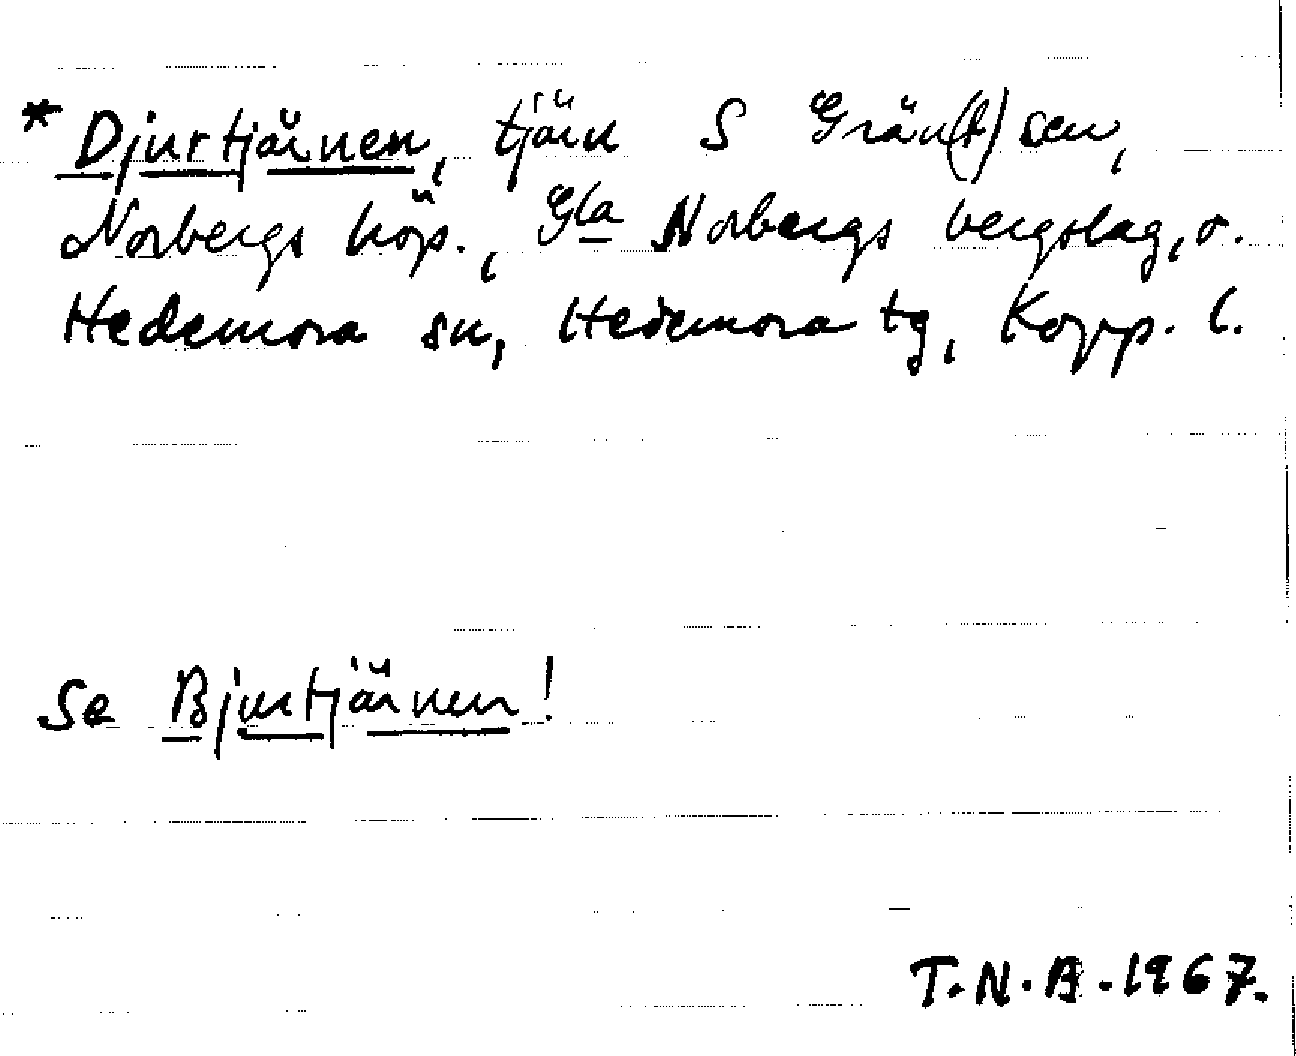 * Djurtjärnen, tjärn S Grän(t)sen,
Norbergs köp., Gla Norbergs bergslag, o.
Hedemora sn, Hedemora tg, Kopp. l.
Se Bjurtjärnen!
T.N.B. 1967.